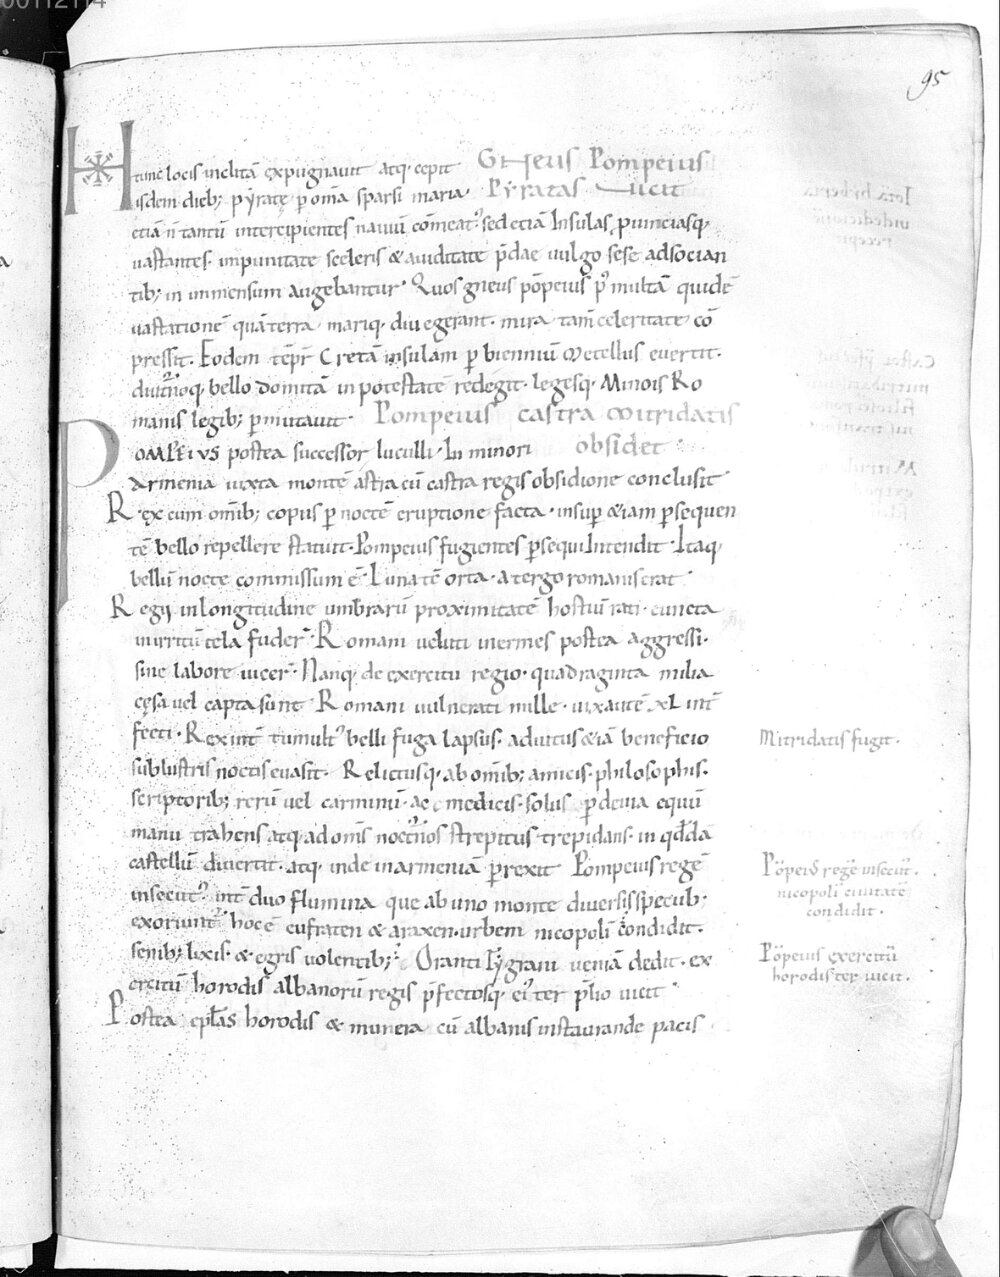 95
Hunc locis inclitā expugnauit atq; cepit Gneus Pompeius
iisdem dieb; pyratę p om̄a sparsi maria· Pyratas uicit
etiā n̄ tantū intercipientes nauiū cōmeat᷒ sed etiā Insulas puinciasq;
uastantes· impunitate sceleris & auiditate p̄dae uulgo sese adsocian
tib; in immensum augebantur· Quos gneus pōpeius p᷒ multā quidē
uastationē quā terra mariq· diu egerant· mira tam̄ celeritate cō
pressit· Eodem tēpr̄ Cretā insulam p bienniū Metellus euertit·
diuturnoq· bello domitā in potestatē redegit· legesq· Minois Ro
manis legib; pmutauit· Pompeius castra mitridatis
POMPEIUS postea successor luculli· In minori obsidet·
Armenia iuxta montē astra cū castra regis obsidione conclusit
Rex cum om̄ib; copiis p noctē eruptione facta· insup &iam psequen
tē bello repellere statuit· Pompeius fugientes psequi Intendit· Itaq·
bellū nocte commissum ē· Luna tē orta· a tergo romanis erat·
Regii in longitudine umbrarū proximitatē hostiū rati· cuncta
in irritū tela fuder̄· Romani ueluti inermes postea aggressi·
sine labore uicer̄· Nanq· de exercitu regio· quadraginta milia
cęsa uel capta sunt· Romani uulnerati mille· uix autē XL int̄
fecti· Rex int̄ tumult᷒ belli fuga lapsus· adiutus &iā beneficio
sublustris noctis euasit· Relictusq· ab om̄ib; amicis· philosophis·
scriptorib; rerū uel carminū· ac medicis· solus p deuia equū
manu trahens atq· ad om̄s noct̄nos strepitus trepidans· in qddā
castellū diuertit· atq· inde in armeniā prexit· Pompeius regē
insecut᷒· int̄ duo flumina que ab uno monte diuersis specub;
exoriunt᷒ hoc ē eufraten & araxen· urbem nicopolī condidit·
senib; lixis· & egris uolentib;· Oranti Tygrani ueniā dedit· ex
ercitū horodis albanorū regis p̄fectosq· ei᷒ ter p̄lio uicit·
Postea ep̄las horodis & munera cū albanis instaurande pacis
Mitridatis fugit·
Pōpei᷒ regē insecut᷒·
nicopolī ciuitatē
condidit·
Pōpeius exercitū
horodis ter uicit·